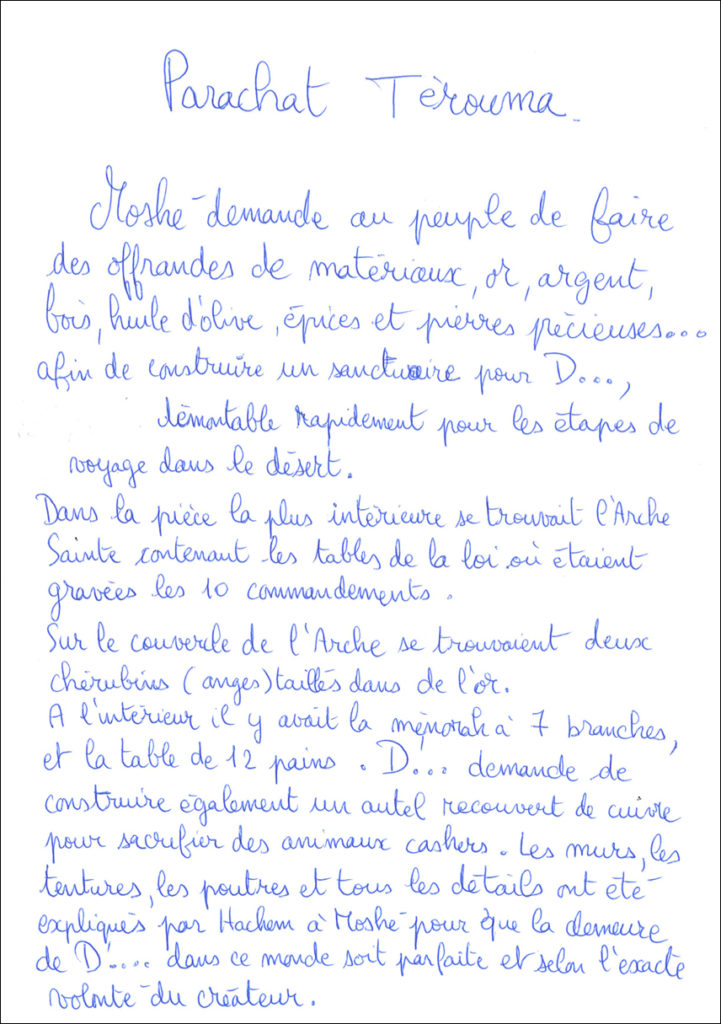 Parachat Térouma.
Moshé demande au peuple de faire
des offrandes de matériaux, or, argent,
bois, huile d'olive, épices et pierres précieuses...
afin de construire un sanctuaire pour D...,
démontable rapidement pour les étapes de
voyage dans le désert.
Dans la pièce la plus intérieure se trouvait l'Arche
Sainte contenant les tables de la loi où étaient
gravées les 10 commandements.
Sur le couvercle de l'Arche se trouvaient deux
chérubins (anges) taillés dans de l'or.
A l'intérieur il y avait la ménorah à 7 branches,
et la table de 12 pains. D... demande de
construire également un autel recouvert de cuivre
pour sacrifier des animaux cashers. Les murs, les
tentures, les poutres et tous les détails ont été
expliqués par Hachem à Moshé pour que la demeure
de D'.... dans ce monde soit parfaite et selon l'exacte
volonté du créateur.